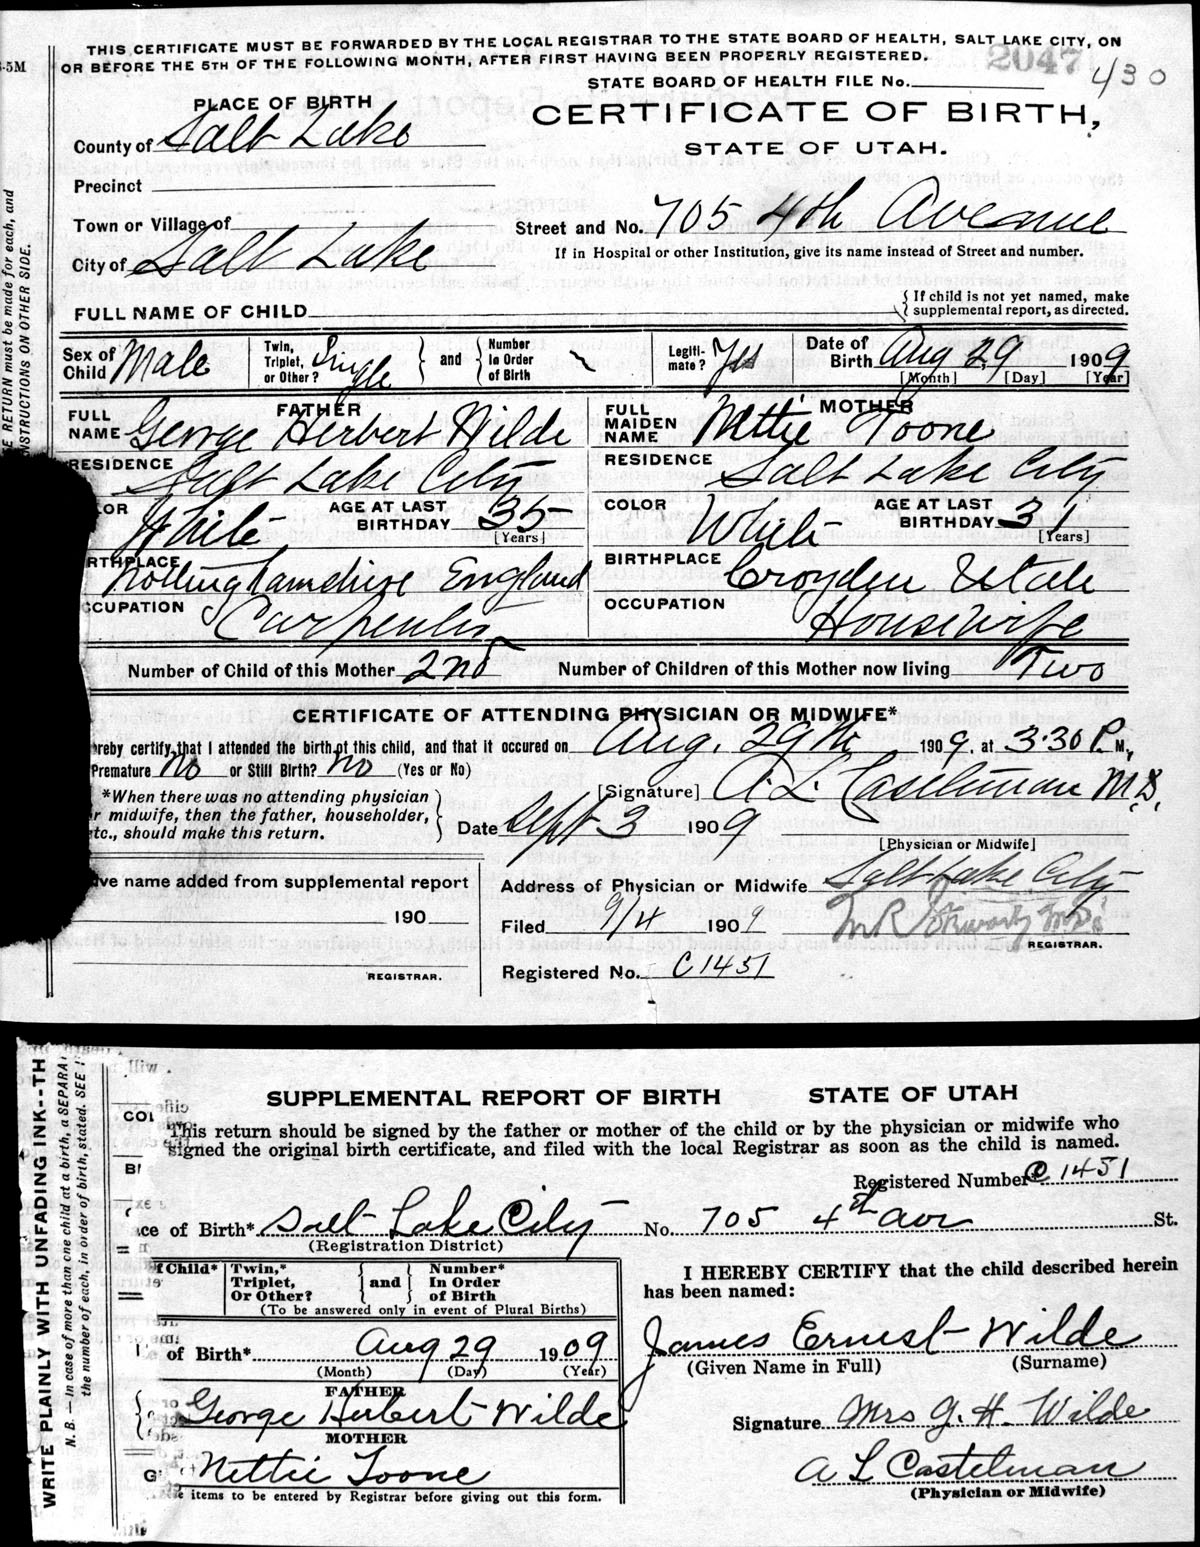 THIS CERTIFICATE MUST BE FORWARDED BY THE LOCAL REGISTRAR TO THE STATE BOARD OF HEALTH, SALT LAKE CITY, ON
OR BEFORE THE 5TH OF THE FOLLOWING MONTH, AFTER FIRST HAVING BEEN PROPERLY REGISTERED.
5M
2047
430
STATE BOARD OF HEALTH FILE No.
PLACE OF BIRTH
CERTIFICATE OF BIRTH,
STATE OF UTAH.
County of Salt Lake
Precinct
Town or Village of
Street and No. 705 4th Avenue
City of Salt Lake
If in Hospital or other Institution, give its name instead of Street and number.
FULL NAME OF CHILD
If child is not yet named, make supplemental report, as directed.
E RETURN must be made for each, and
NSTRUCTIONS ON OTHER SIDE.
Sex of Child Male
Twin, Triplet, or Other? Single
and
Number in Order of Birth
Legitimate? Yes
Date of Birth Aug 29 1909
[Month] [Day] [Year]
FATHER
FULL NAME George Herbert Wilde
MOTHER
FULL MAIDEN NAME Nettie Toone
RESIDENCE Salt Lake City
RESIDENCE Salt Lake City
OR White
AGE AT LAST BIRTHDAY 35 [Years]
COLOR White
AGE AT LAST BIRTHDAY 31 [Years]
RTHPLACE Nottinghamshire England
BIRTHPLACE Croyden Utah
CCUPATION Carpenter
OCCUPATION Housewife
Number of Child of this Mother 2nd
Number of Children of this Mother now living Two
CERTIFICATE OF ATTENDING PHYSICIAN OR MIDWIFE*
ereby certify that I attended the birth of this child, and that it occured on Aug. 29th 1909, at 3.30 P. M,
Premature No or Still Birth? No (Yes or No)
[Signature] A. L. Castleman M.D.
*When there was no attending physician
r midwife, then the father, householder,
etc., should make this return.
Date Sept 3 1909
[Physician or Midwife]
ve name added from supplemental report
Address of Physician or Midwife Salt Lake City
190
Filed 9/4 1909
REGISTRAR.
REGISTRAR.
Registered No. C1451
WRITE PLAINLY WITH UNFADING INK--TH
N. B. — In case of more than one child at a birth, a SEPARA
the number of each, in order of birth, stated. SEE
SUPPLEMENTAL REPORT OF BIRTH STATE OF UTAH
This return should be signed by the father or mother of the child or by the physician or midwife who
signed the original birth certificate, and filed with the local Registrar as soon as the child is named.
Registered Number* C 1451
ce of Birth* Salt Lake City No. 705 4th ave St.
(Registration District)
f Child*
Twin,* Triplet, Or Other?
and
Number* In Order of Birth
(To be answered only in event of Plural Births)
I HEREBY CERTIFY that the child described herein
has been named:
of Birth* Aug 29 1909
(Month) (Day) (Year)
James Ernest Wilde
(Given Name in Full) (Surname)
FATHER
George Herbert Wilde
Signature Mrs G. H. Wilde
MOTHER
Nettie Toone
A L Castelman
(Physician or Midwife)
items to be entered by Registrar before giving out this form.